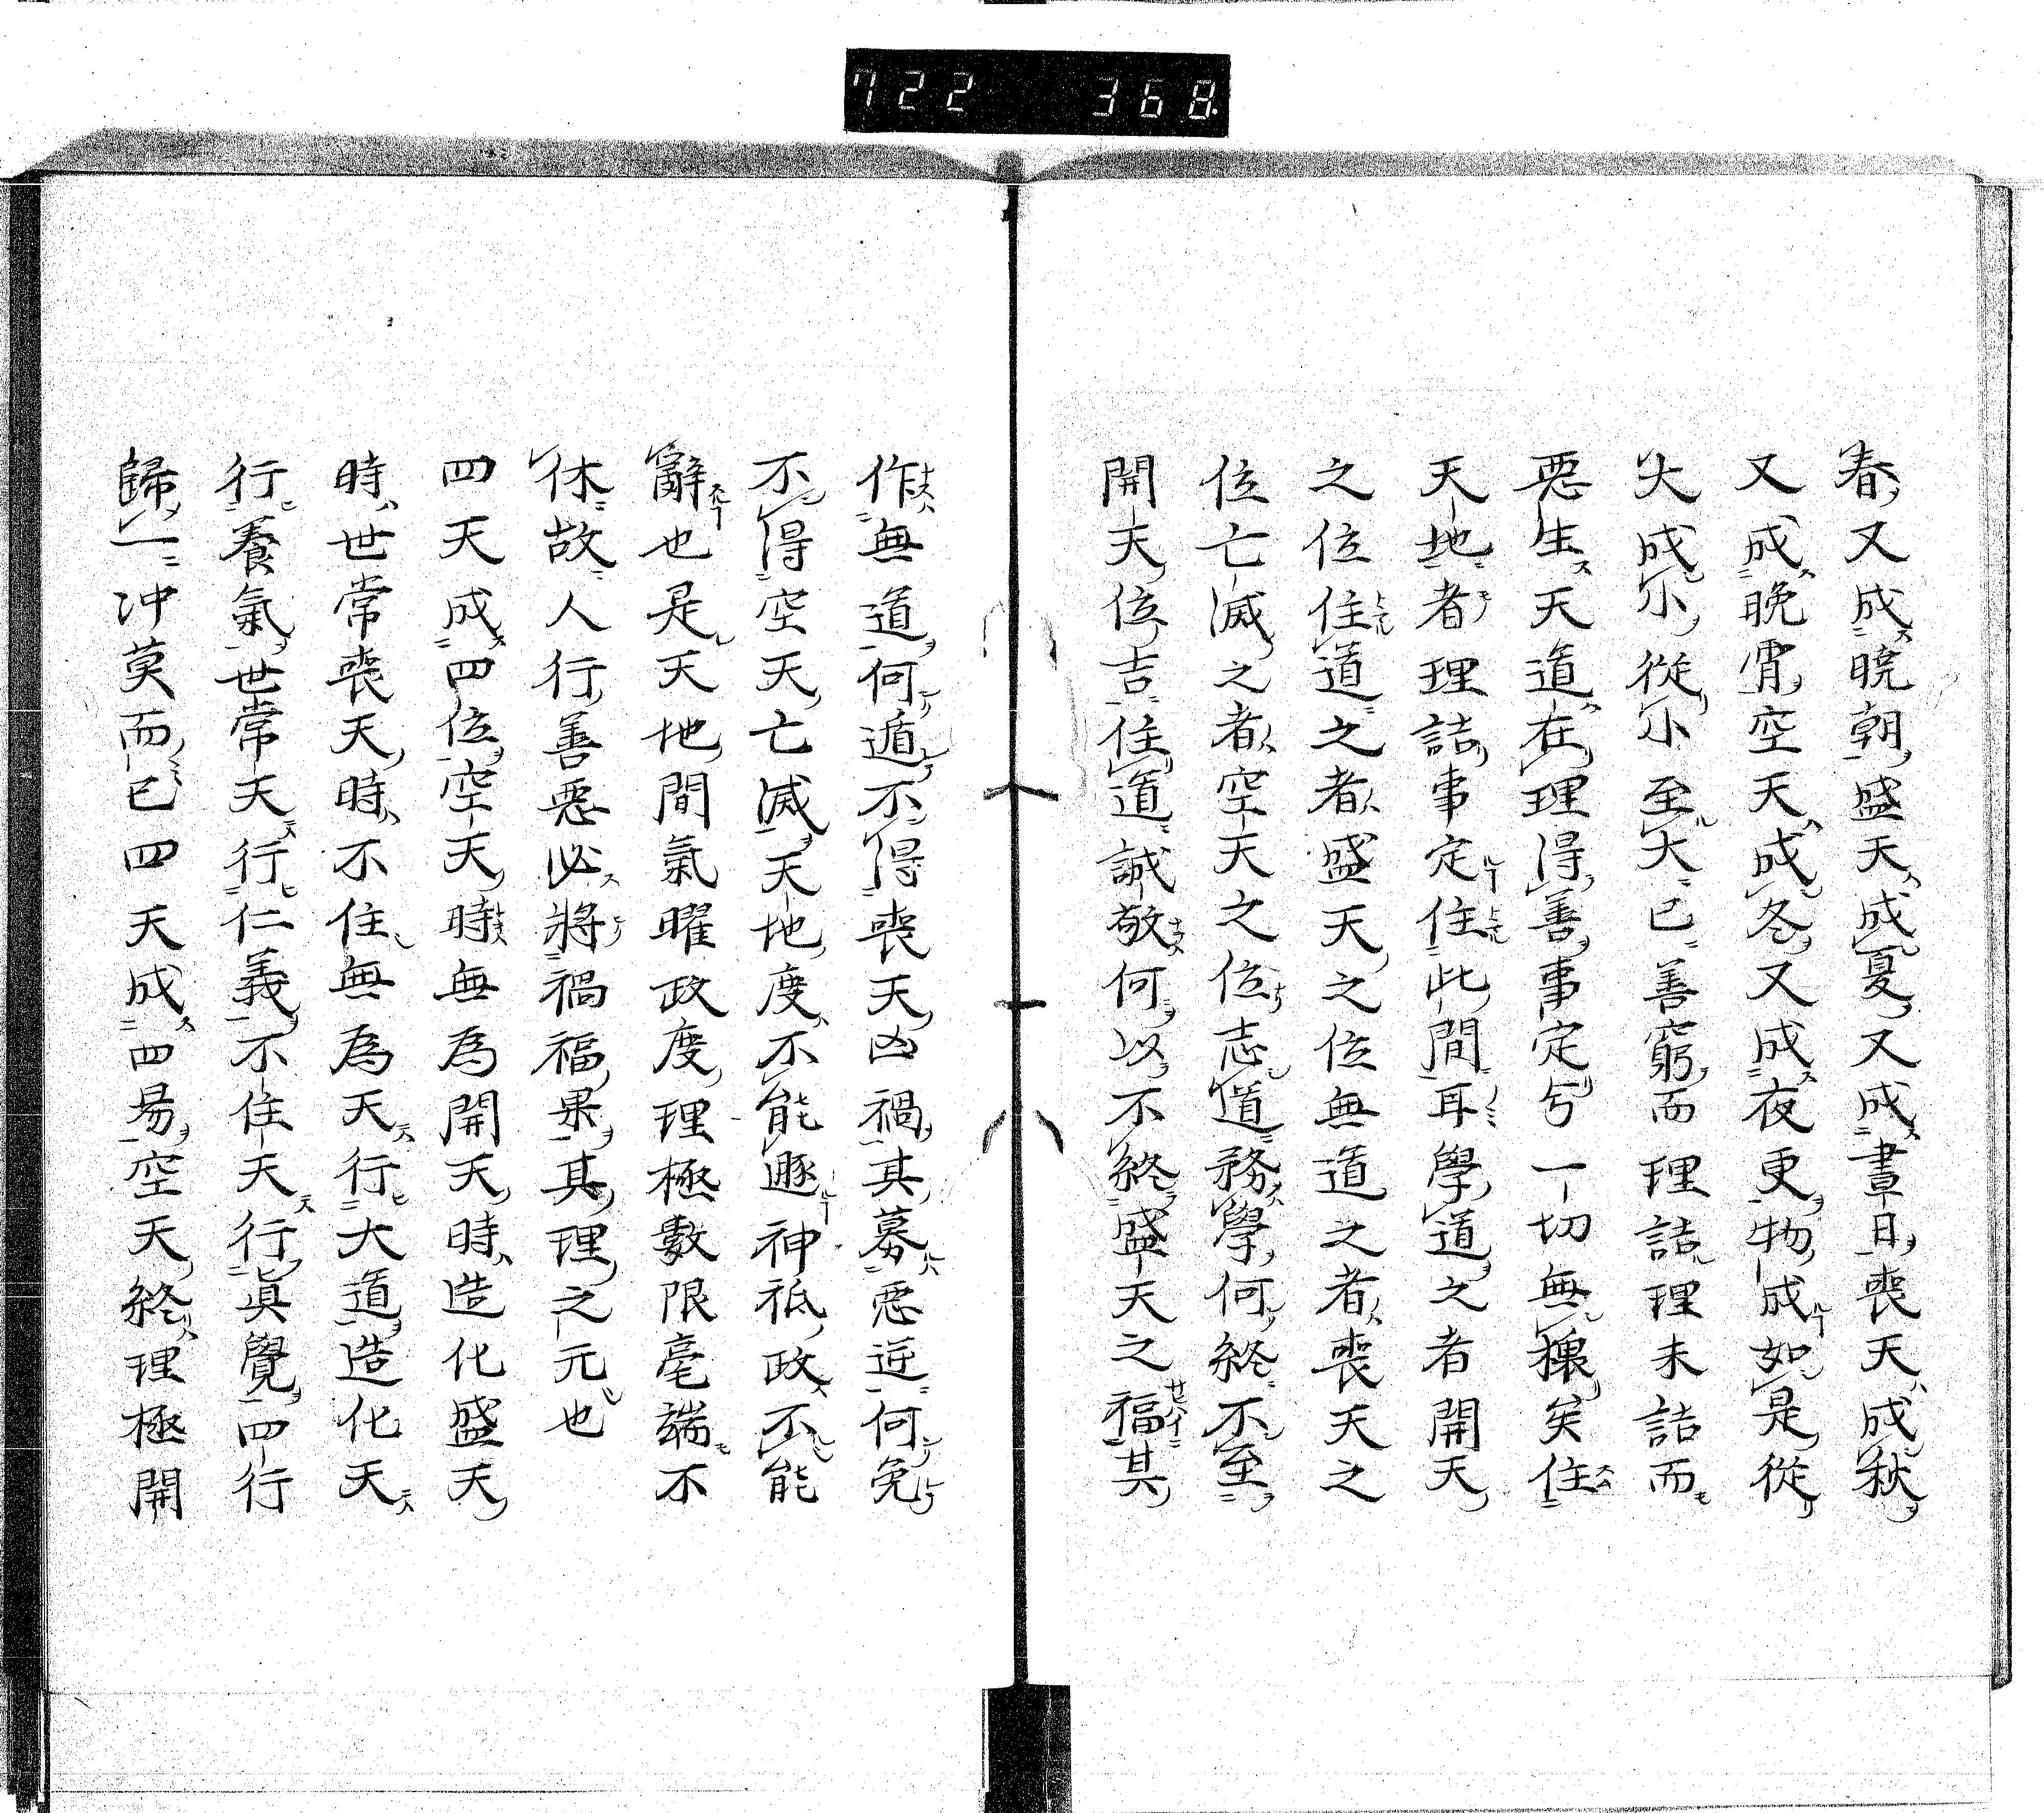 722 368
春又成曉朝盛天成夏又成晝日喪天成秋
又成晚宵空天成冬又成夜更物成如是從
大成小從小至大已善窮而理詰理未詰而
惡生天道在理得善事定兮一切無穰矣住
天地者理詰事定住此間耳學道之者開天
之位住道之者盛天之位無道之者喪天之
位亡滅之者空天之位志道務學何終不至
開天位吉住道誠敬何以不終盛天之福其
作無道何遁不得喪天凶禍其募惡逆何免
不得空天亡滅天地度不能遯神祇政不能
辭也是天地間氣曜政度理極數限毫端不
休故人行善惡必將禍福果其理之元也
四天成四位空天時無為開天時造化盛天
時世常喪天時不住無為天行大道造化天
行養氣世常天行仁義不住天行眞覺四行
歸一冲莫而已四天成四易空天終理極開